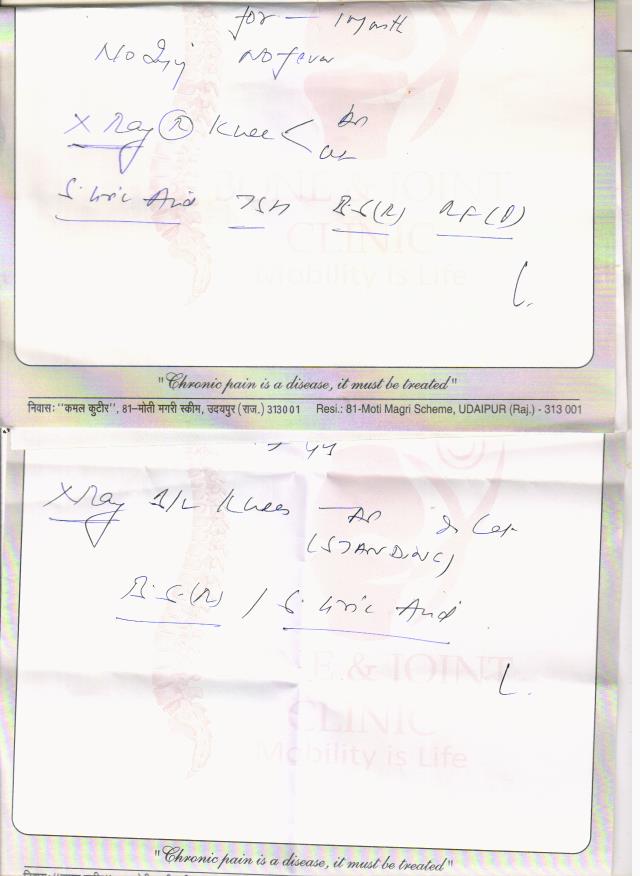 for — 1 month
No Inj No fever
X Ray (R) Knee < AP
Lat
S. Uric Acid TSH B-S(R) RF(Q)
BONE & JOINT
CLINIC
Mobility is Life
"Chronic pain is a disease, it must be treated"
निवास: "कमल कुटीर", 81-मोती मगरी स्कीम, उदयपुर (राज.) 313001 Resi.: 81-Moti Magri Scheme, UDAIPUR (Raj.) - 313 001
X Ray B/L Knees — AP & Lat
(STANDING)
B.S.(R) / S. Uric Acid
E & JOINT
CLINIC
Mobility is Life
"Chronic pain is a disease, it must be treated"